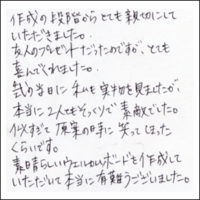 作成の段階からとても親切にして
いただきました。
友人のプレゼントだったのですが、とても
喜んでくれました。
式の当日に私も実物を見ましたが、
本当に2人ともそっくりで素敵でした。
似すぎて原案の時に笑ってしまった
くらいです。
素晴らしいウェルカムボードを作成して
いただいて本当に有難うございました。